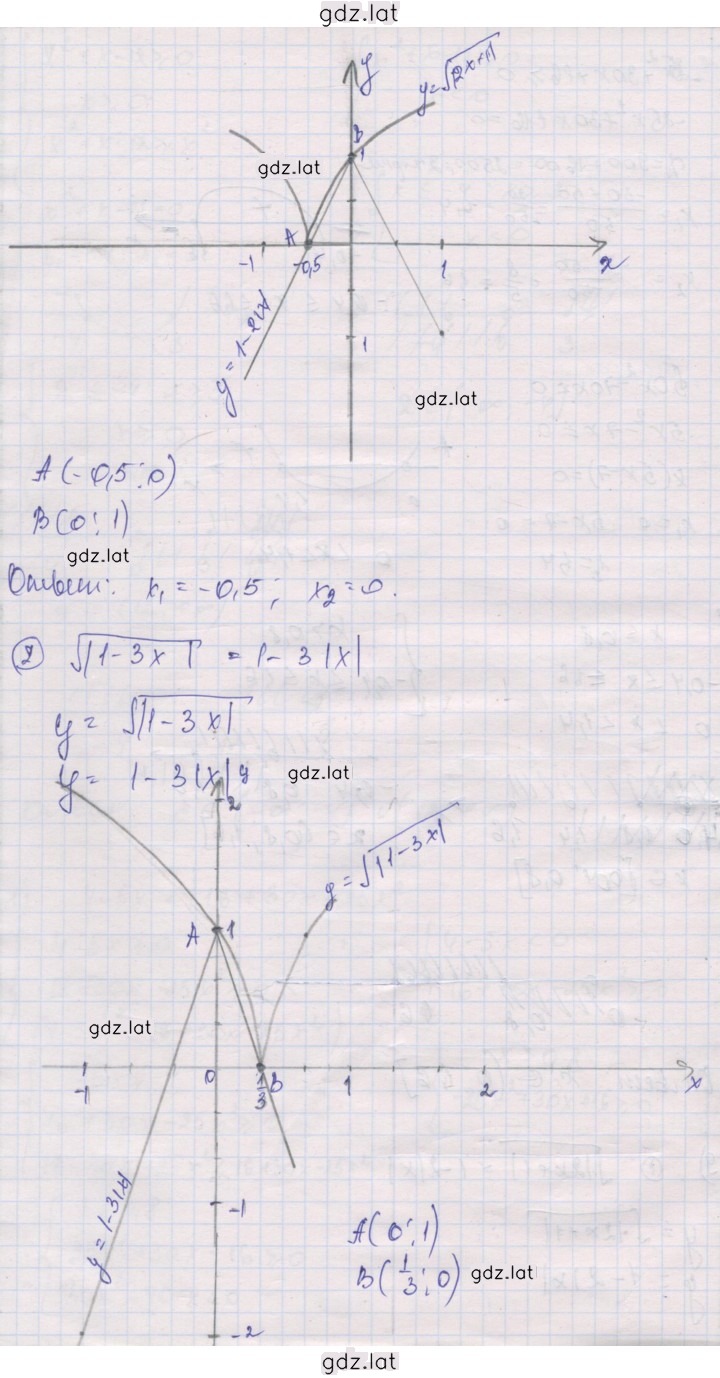 gdz.lat
y
y=√|2x+1|
B
1
gdz.lat
A
-1
-0,5
1
x
y=1-2|x|
1
gdz.lat
A(-0,5;0)
B(0;1)
gdz.lat
Ответ: x₁=-0,5; x₂=0.
② √|1-3x| = 1-3|x|
y = √|1-3x|
y = 1-3|x|
gdz.lat
y
2
y=√|1-3x|
A
1
gdz.lat
-1
0
1/3
B
1
2
x
y=1-3|x|
-1
A(0;1)
B(1/3;0)
gdz.lat
-2
gdz.lat